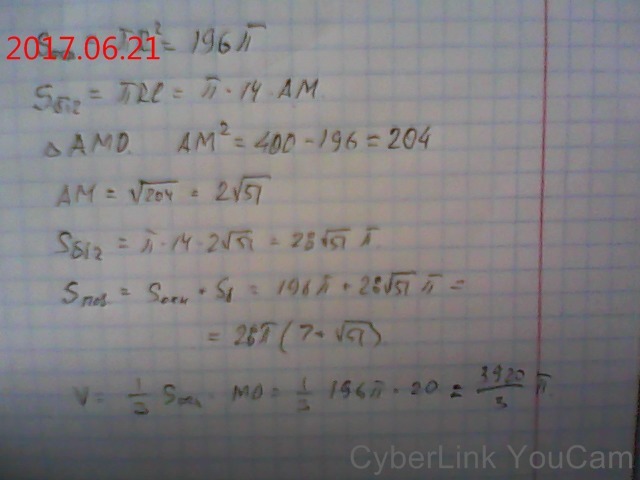 2017.06.21
Sосн = πR² = 196π
Sбіч = πRl = π · 14 · AM
△ AMO. AM² = 400 - 196 = 204
AM = √204 = 2√51
Sбіч = π · 14 · 2√51 = 28√51 π.
Sпов = Sосн + Sб = 196π + 28√51 π =
= 28π (7 + √51)
V = 1/3 Sосн · MO = 1/3 196π · 20 = 3920/3 π.
CyberLink YouCam